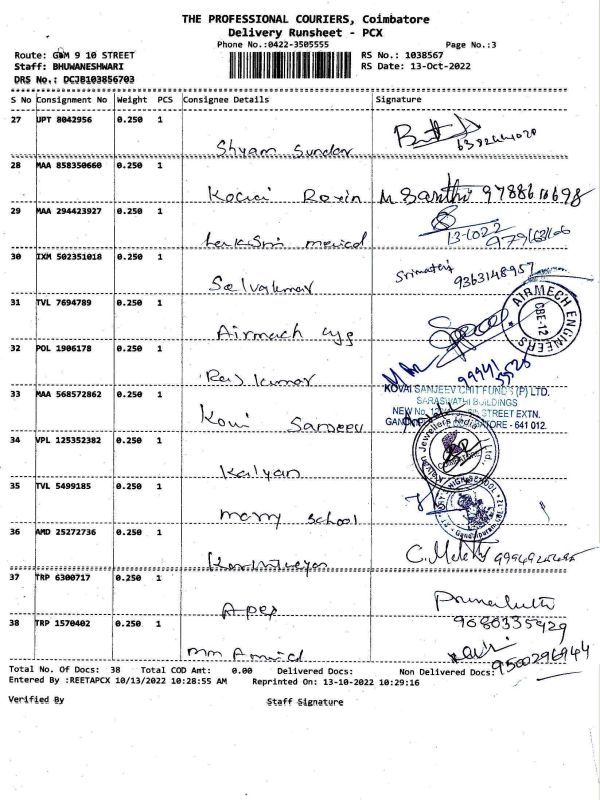 THE PROFESSIONAL COURIERS, Coimbatore
Delivery Runsheet - PCX
Phone No.:0422-3505555 Page No.:3
Route: GDM 9 10 STREET RS No.: 1038567
Staff: BHUWANESHWARI RS Date: 13-Oct-2022
DRS No.: DCJB103856703
S No Consignment No Weight PCS Consignee Details Signature
27 UPT 8042956 0.250 1
Shyam Sundar
28 MAA 858350660 0.250 1
Kovai Santhi 9788616698
29 MAA 294423927 0.250 1
13-10-22
30 IXM 502351018 0.250 1
Selvakumar Srimathi 9363148957
31 TVL 7694789 0.250 1
AIRMECH ENGINEERS
CBE-12
Airmach
32 POL 1906178 0.250 1
Raj kumar 99941
33 MAA 568572862 0.250 1
KOVAI SANJEEV CHIT FUNDS (P) LTD.
SARASWATHI BUILDINGS
STREET EXTN.
- 641 012.
34 VPL 125352382 0.250 1
Kalyan Jewellers India Ltd.
Kalyan
35 TVL 5499185 0.250 1
HIGH SCHOOL
school
36 AMD 25272736 0.250 1
37 TRP 6300717 0.250 1
Apex 9080335429
38 TRP 1570402 0.250 1
9500296944
Total No. Of Docs: 38 Total COD Amt: 0.00 Delivered Docs: Non Delivered Docs:
Entered By :REETAPCX 10/13/2022 10:28:55 AM Reprinted On: 13-10-2022 10:29:16
Verified By Staff Signature